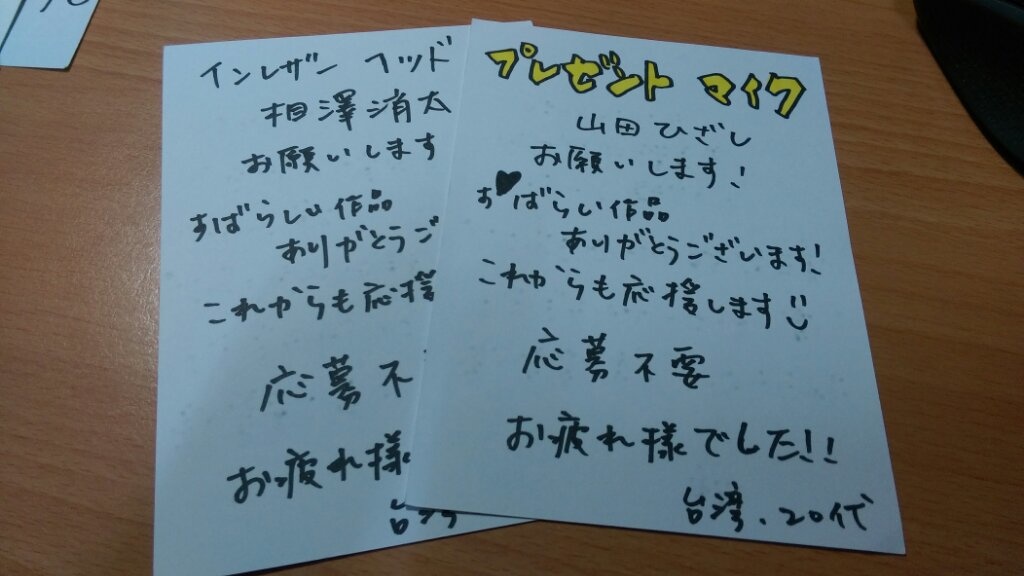 インレザー ヘッド
相澤消太
お願いします
すばらしい作品
ありがとうご
これからも応援
応募不
お疲れ様
台湾
プレゼント マイク
山田ひざし
お願いします!
す♥ばらい作品
ありがとうございます!
これからも応援します
応募不要
お疲れ様でした!!
台湾、20代